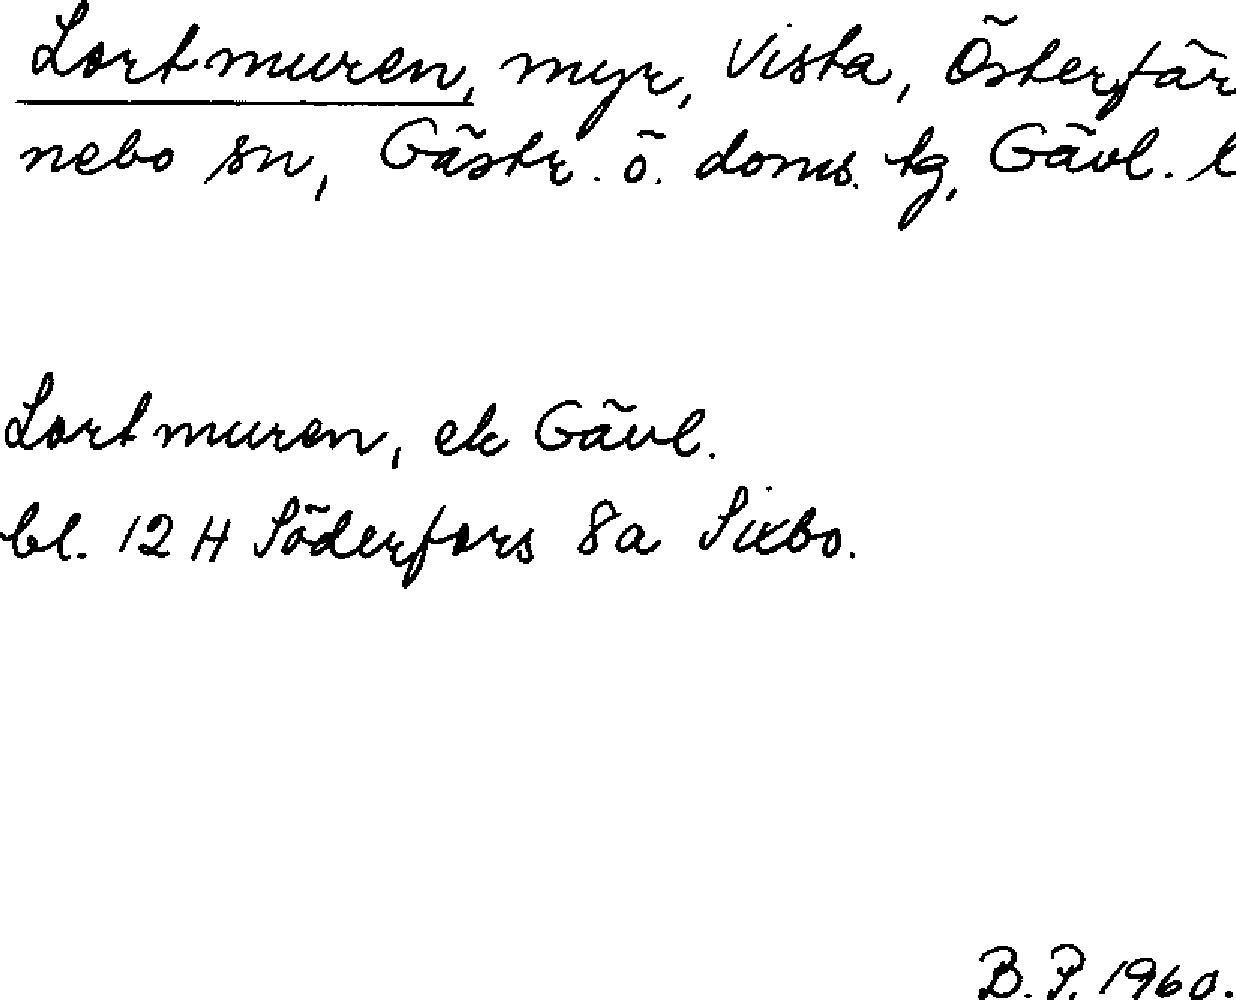 Lortmuren, myr, Vista, Österfär
nebo sn, Gästr. ö. doms. tg, Gävl. l
Lortmuren, ek Gävl.
bl. 12 H Söderfors 8a Sixbo.
B. P. 1960.